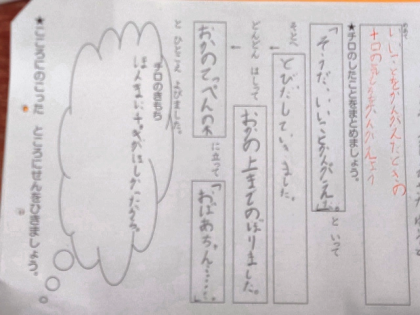 いいことをかんがえたときの
チロの気もちをかんがえよう
★チロのしたことをまとめましょう。
「そうだ、いいことかんがえた。」
といって
そとへ
とびだしていきました。
どんどん はしって
おかの上までのぼりました。
おかのてっぺんの木
に立って
「おばあちゃん……。」
と ひとこえ よびました。
チロのきもち
★こころにのこった ところにせんをひきましょう。